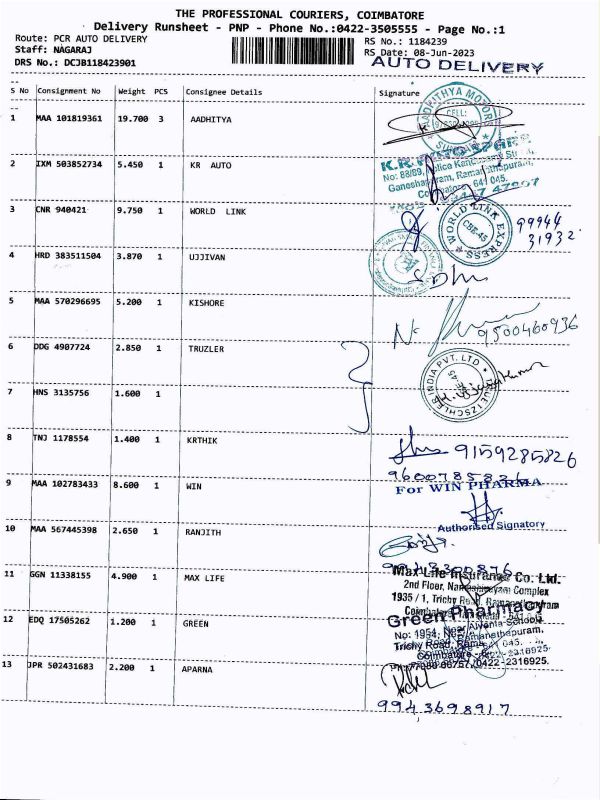 THE PROFESSIONAL COURIERS, COIMBATORE
Delivery Runsheet - PNP - Phone No.:0422-3505555 - Page No.:1
Route: PCR AUTO DELIVERY
RS No.: 1184239
Staff: NAGARAJ
RS Date: 08-Jun-2023
DRS No.: DCJB118423901
AUTO DELIVERY
S No Consignment No Weight PCS Consignee Details Signature
1 MAA 101819361 19.700 3 AADHITYA
AADHITHYA MOTORS
CELL:
2 IXM 503852734 5.450 1 KR AUTO
Ganeshapuram, Ramanathapuram,
641 045.
3 CNR 940421 9.750 1 WORLD LINK
WORLD LINK EXPRESS
CBE-45
99944
31932
4 HRD 383511504 3.870 1 UJJIVAN
5 MAA 570296695 5.200 1 KISHORE
9500460936
6 DDG 4907724 2.850 1 TRUZLER
INDIA PVT. LTD
7 HNS 3135756 1.600 1
8 TNJ 1178554 1.400 1 KRTHIK
9159285826
9 MAA 102783433 8.600 1 WIN
For WIN PHARMA
Authorised Signatory
10 MAA 567445398 2.650 1 RANJITH
11 GGN 11338155 4.900 1 MAX LIFE
Max Life Insurance Co. Ltd.
2nd Floor, Complex
1935 / 1, Trichy Road, Ramanathapuram
12 EDQ 17505262 1.200 1 GREEN
Green Pharmacy
Ramanathapuram,
Trichy Road,
0422-2316925.
13 JPR 502431683 2.200 1 APARNA
9943698917